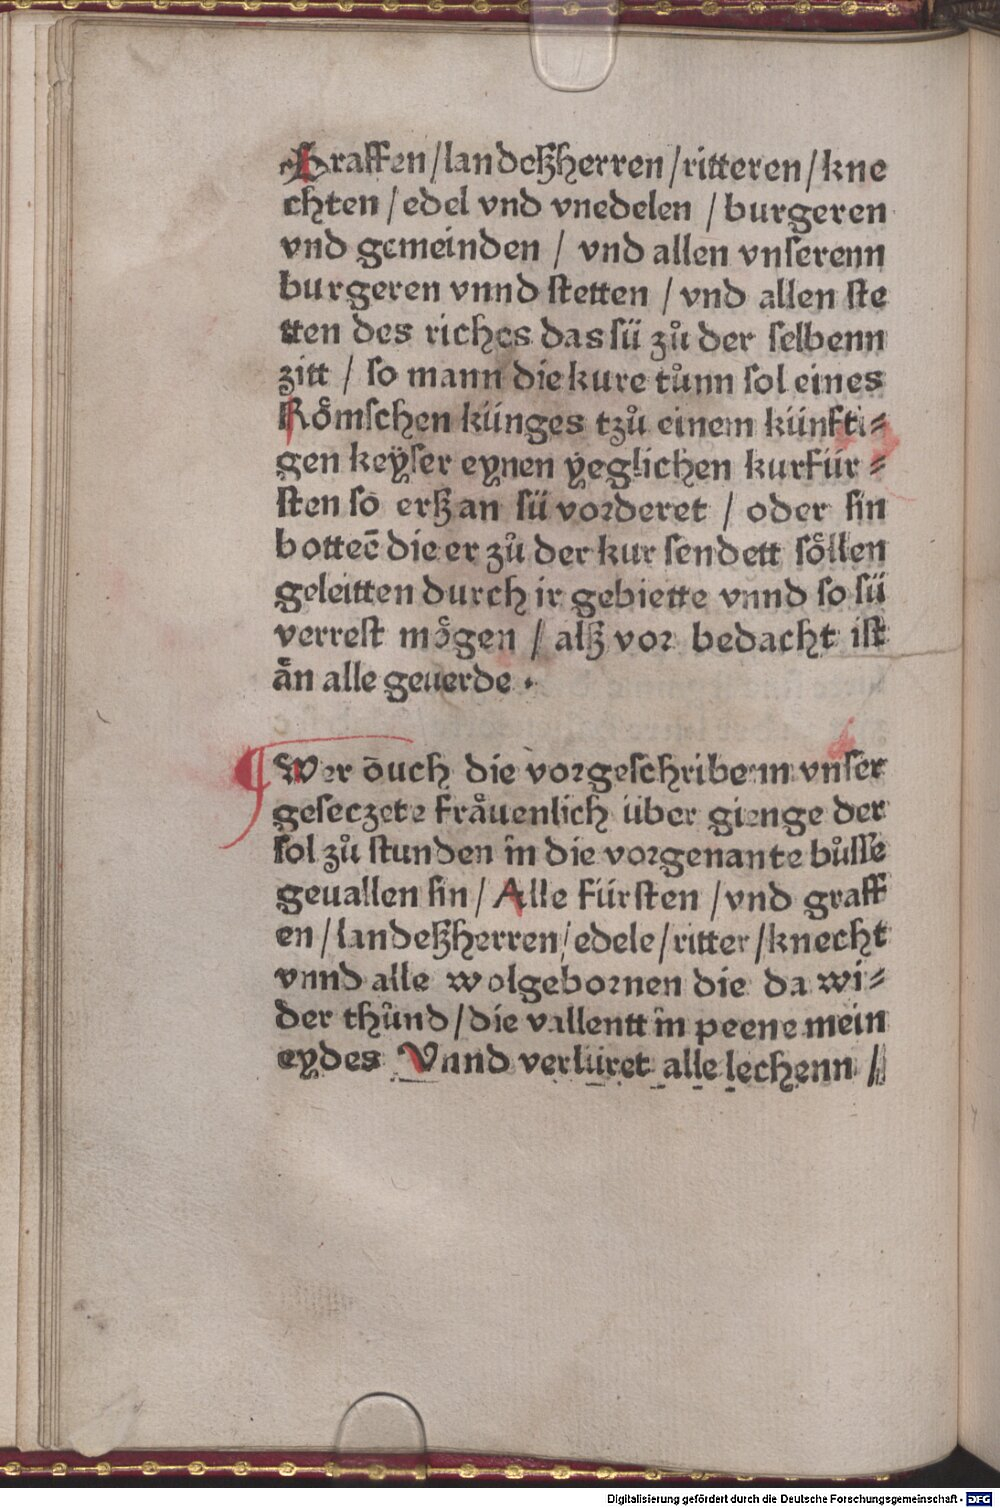 Graffen/landeßherren/ritteren/kne
chten/edel vnd vnedelen/burgeren
vnd gemeinden/ vnd allen vnserenn
burgeren vnnd stetten/vnd allen ste
tten des riches das sü zů der selbenn
zitt/ so mann die kure tůnn sol eines
Rőmschen künges tzů einem künfti⸗
gen keÿser eynen ÿeglichen kurfür⸗
sten so erß an sü vorderet/ oder sin
bottec̄ die er zů der kur sendett sőllen
geleitten durch ir gebiette vnnd so sü
verrest mőgen/ alß vor bedacht ist
ån alle geuerde.
¶ Wer ōuch die vorgeschribenn vnser
geseczete fråuenlich über gienge der
sol zů stunden in die vorgenante bůsse
geuallen sin/ Alle fürsten/vnd graff
en/landeßherren/edele/ritter/knecht
vnnd alle wolgebornen die da wi⸗
der thůnd/die vallentt in peene mein
eydes Vnnd verlüret alle lechenn/
Digitalisierung gefördert durch die Deutsche Forschungsgemeinschaft - DFG